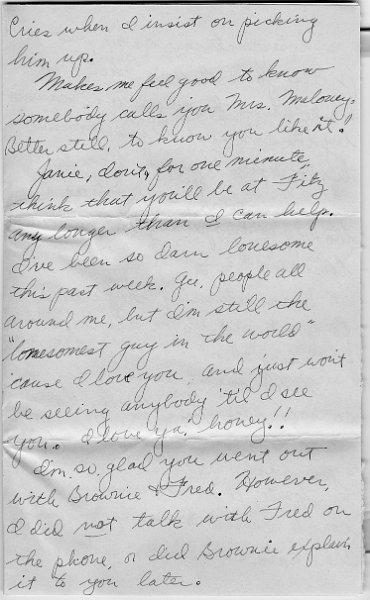 Cries when I insist on picking
him up.
Makes me feel good to know
somebody calls you Mrs. Maloney.
Better still, to know you like it!
Janie, don't, for one minute,
think that you'll be at Fitz
any longer than I can help.
I've been so darn lonesome
this past week. Gee, people all
around me, but I'm still the
"lonesomest guy in the world"
'cause I love you, and just won't
be seeing anybody 'til I see
you. I love ya' honey!!
I'm so glad you went out
with Brownie & Fred. However,
I did not talk with Fred on
the phone, or did Brownie explain
it to you later.